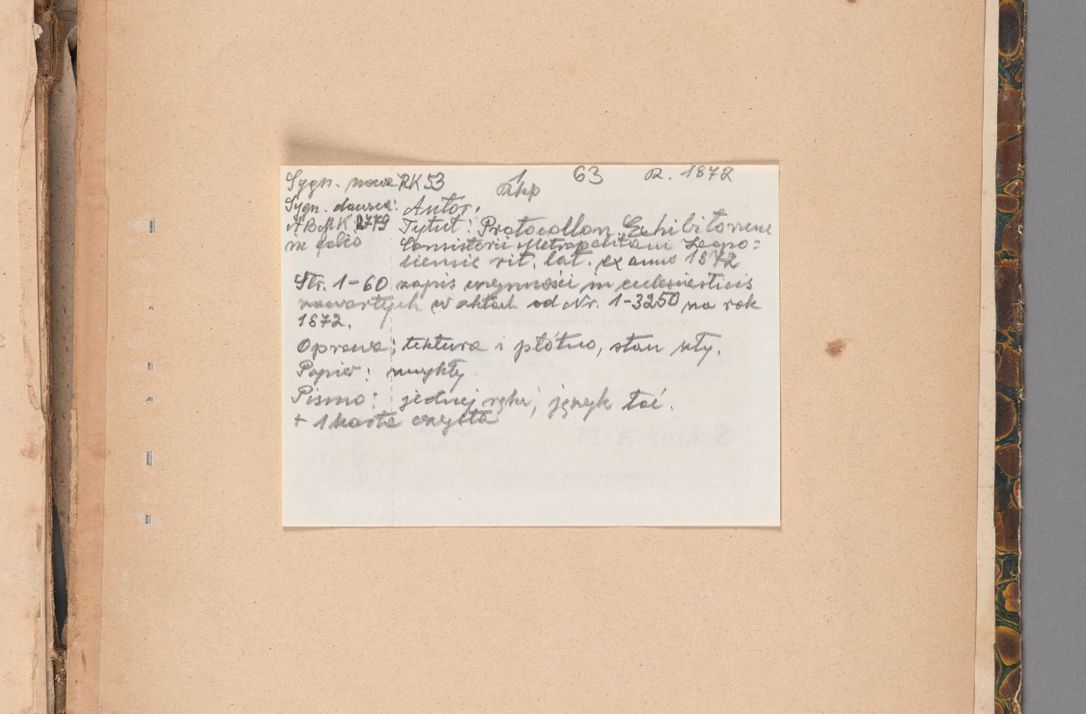 Sygn. nowa: RK 53 1 63 R. 1872
rkp
Sygn. dawna: Autor:
ABMK 2779 Tytuł: Protocollon Exhibitorum
in folio Consistorii Metropolitani Leopo=
liensis rit. lat. ex anno 1872
Str. 1-60 zapis czynności in ecclesiasticis
zawartych w aktach od Nr. 1-3250 na rok
1872.
Oprawa: tektura i płótno, stan zły.
Papier: zwykły
Pismo: jednej ręki, język łać.
+ 1 karta czysta